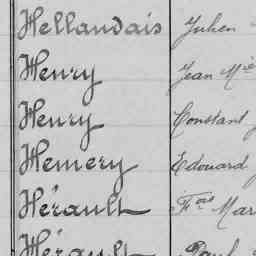 Hellandais Julien
Henry Jean Mie
Henry Constant
Hemery Edouard
Hérault Fois Mar
Hérault Paul